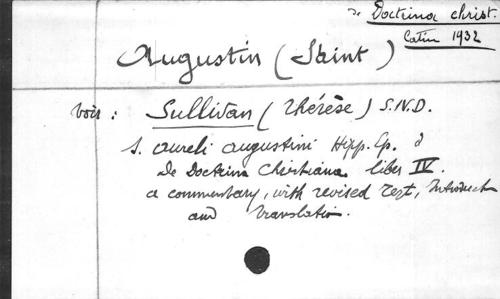 De Doctrina christ.
Latin 1932
Augustin (Saint)
voir : Sullivan (Thérèse) S.N.D.
S. Aureli Augustini Hipp. Ep.
De Doctrina Christiana liber IV.
a commentary, with revised text, Introduct
and translation.